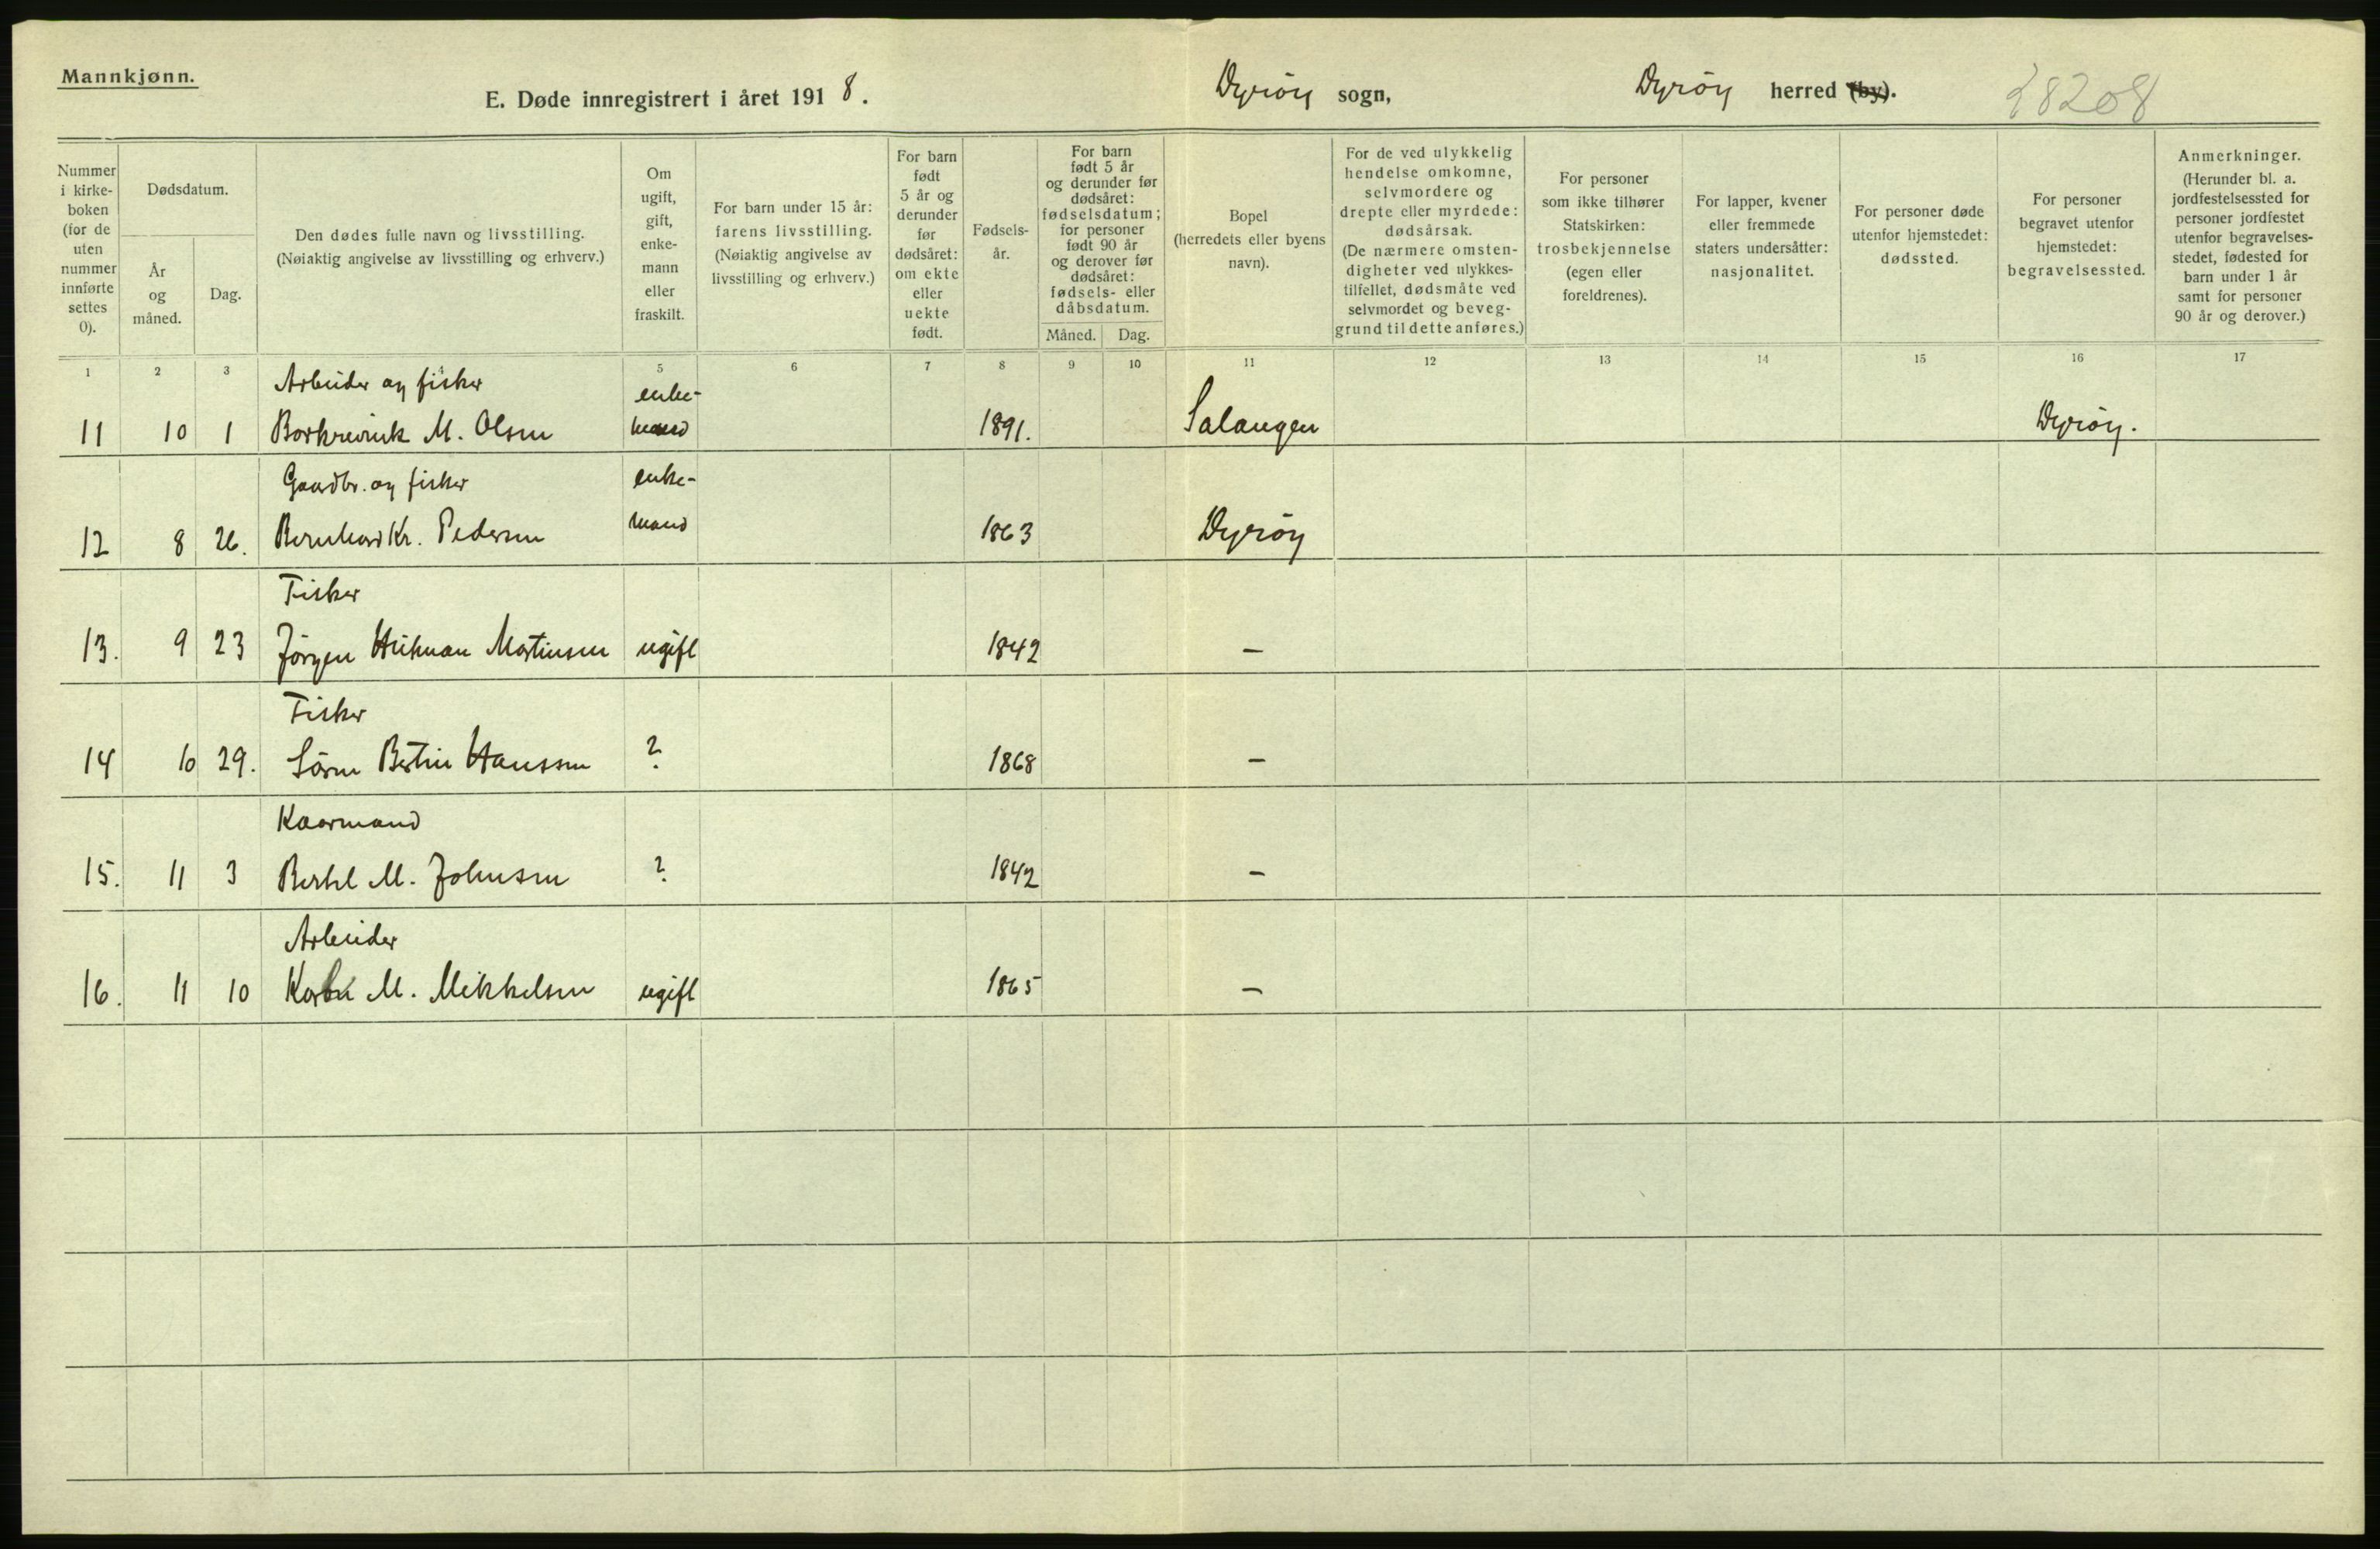 Mannkjønn.
E. Døde innregistrert i året 1918.
Dyrøy sogn,
Dyrøy herred (by).
28208
Nummer
i kirke-
boken
(for de
uten
nummer
innførte
settes
0).
Dødsdatum.
År
og
måned.
Dag.
Den dødes fulle navn og livsstilling.
(Nøiaktig angivelse av livsstilling og erhverv.)
Om
ugift,
gift,
enke-
mann
eller
fraskilt.
For barn under 15 år:
farens livsstilling.
(Nøiaktig angivelse av
livsstilling og erhverv.)
For barn
født
5 år og
derunder
før
dødsåret:
om ekte
eller
uekte
født.
Fødsels-
år.
For barn
født 5 år
og derunder før
dødsåret:
fødselsdatum;
for personer
født 90 år
og derover før
dødsåret:
fødsels- eller
dåbsdatum.
Måned. Dag.
Bopel
(herredets eller byens
navn).
For de ved ulykkelig
hendelse omkomne,
selvmordere og
drepte eller myrdede:
dødsårsak.
(De nærmere omsten-
digheter ved ulykkes-
tilfellet, dødsmåte ved
selvmordet og beveg-
grund til dette anføres.)
For personer
som ikke tilhører
Statskirken:
trosbekjennelse
(egen eller
foreldrenes).
For lapper, kvener
eller fremmede
staters undersåtter:
nasjonalitet.
For personer døde
utenfor hjemstedet:
dødssted.
For personer
begravet utenfor
hjemstedet:
begravelsessted.
Anmerkninger.
(Herunder bl. a.
jordfestelsessted for
personer jordfestet
utenfor begravelses-
stedet, fødested for
barn under 1 år
samt for personer
90 år og derover.)
1 2 3 4 5 6 7 8 9 10 11 12 13 14 15 16 17
Arbeider og fisker enke-
11 10 1 M. Olsen mand 1891. Salangen Dyrøy.
Gaardbr. og fisker enke-
12 8 26. Bernhard Kr. Pedersen mand 1863 Dyrøy
Fisker
13. 9 23 Jörgen Hilmar Martinsen ugift 1842 –
Fisker
14 10 29. Sören Bertin Hanssen ? 1868 –
Kaarmand
15. 11 3 Berthl M. Johnsen ? 1842 –
Arbeider
16. 11 10 M. Mikkelsen ugift 1865 –